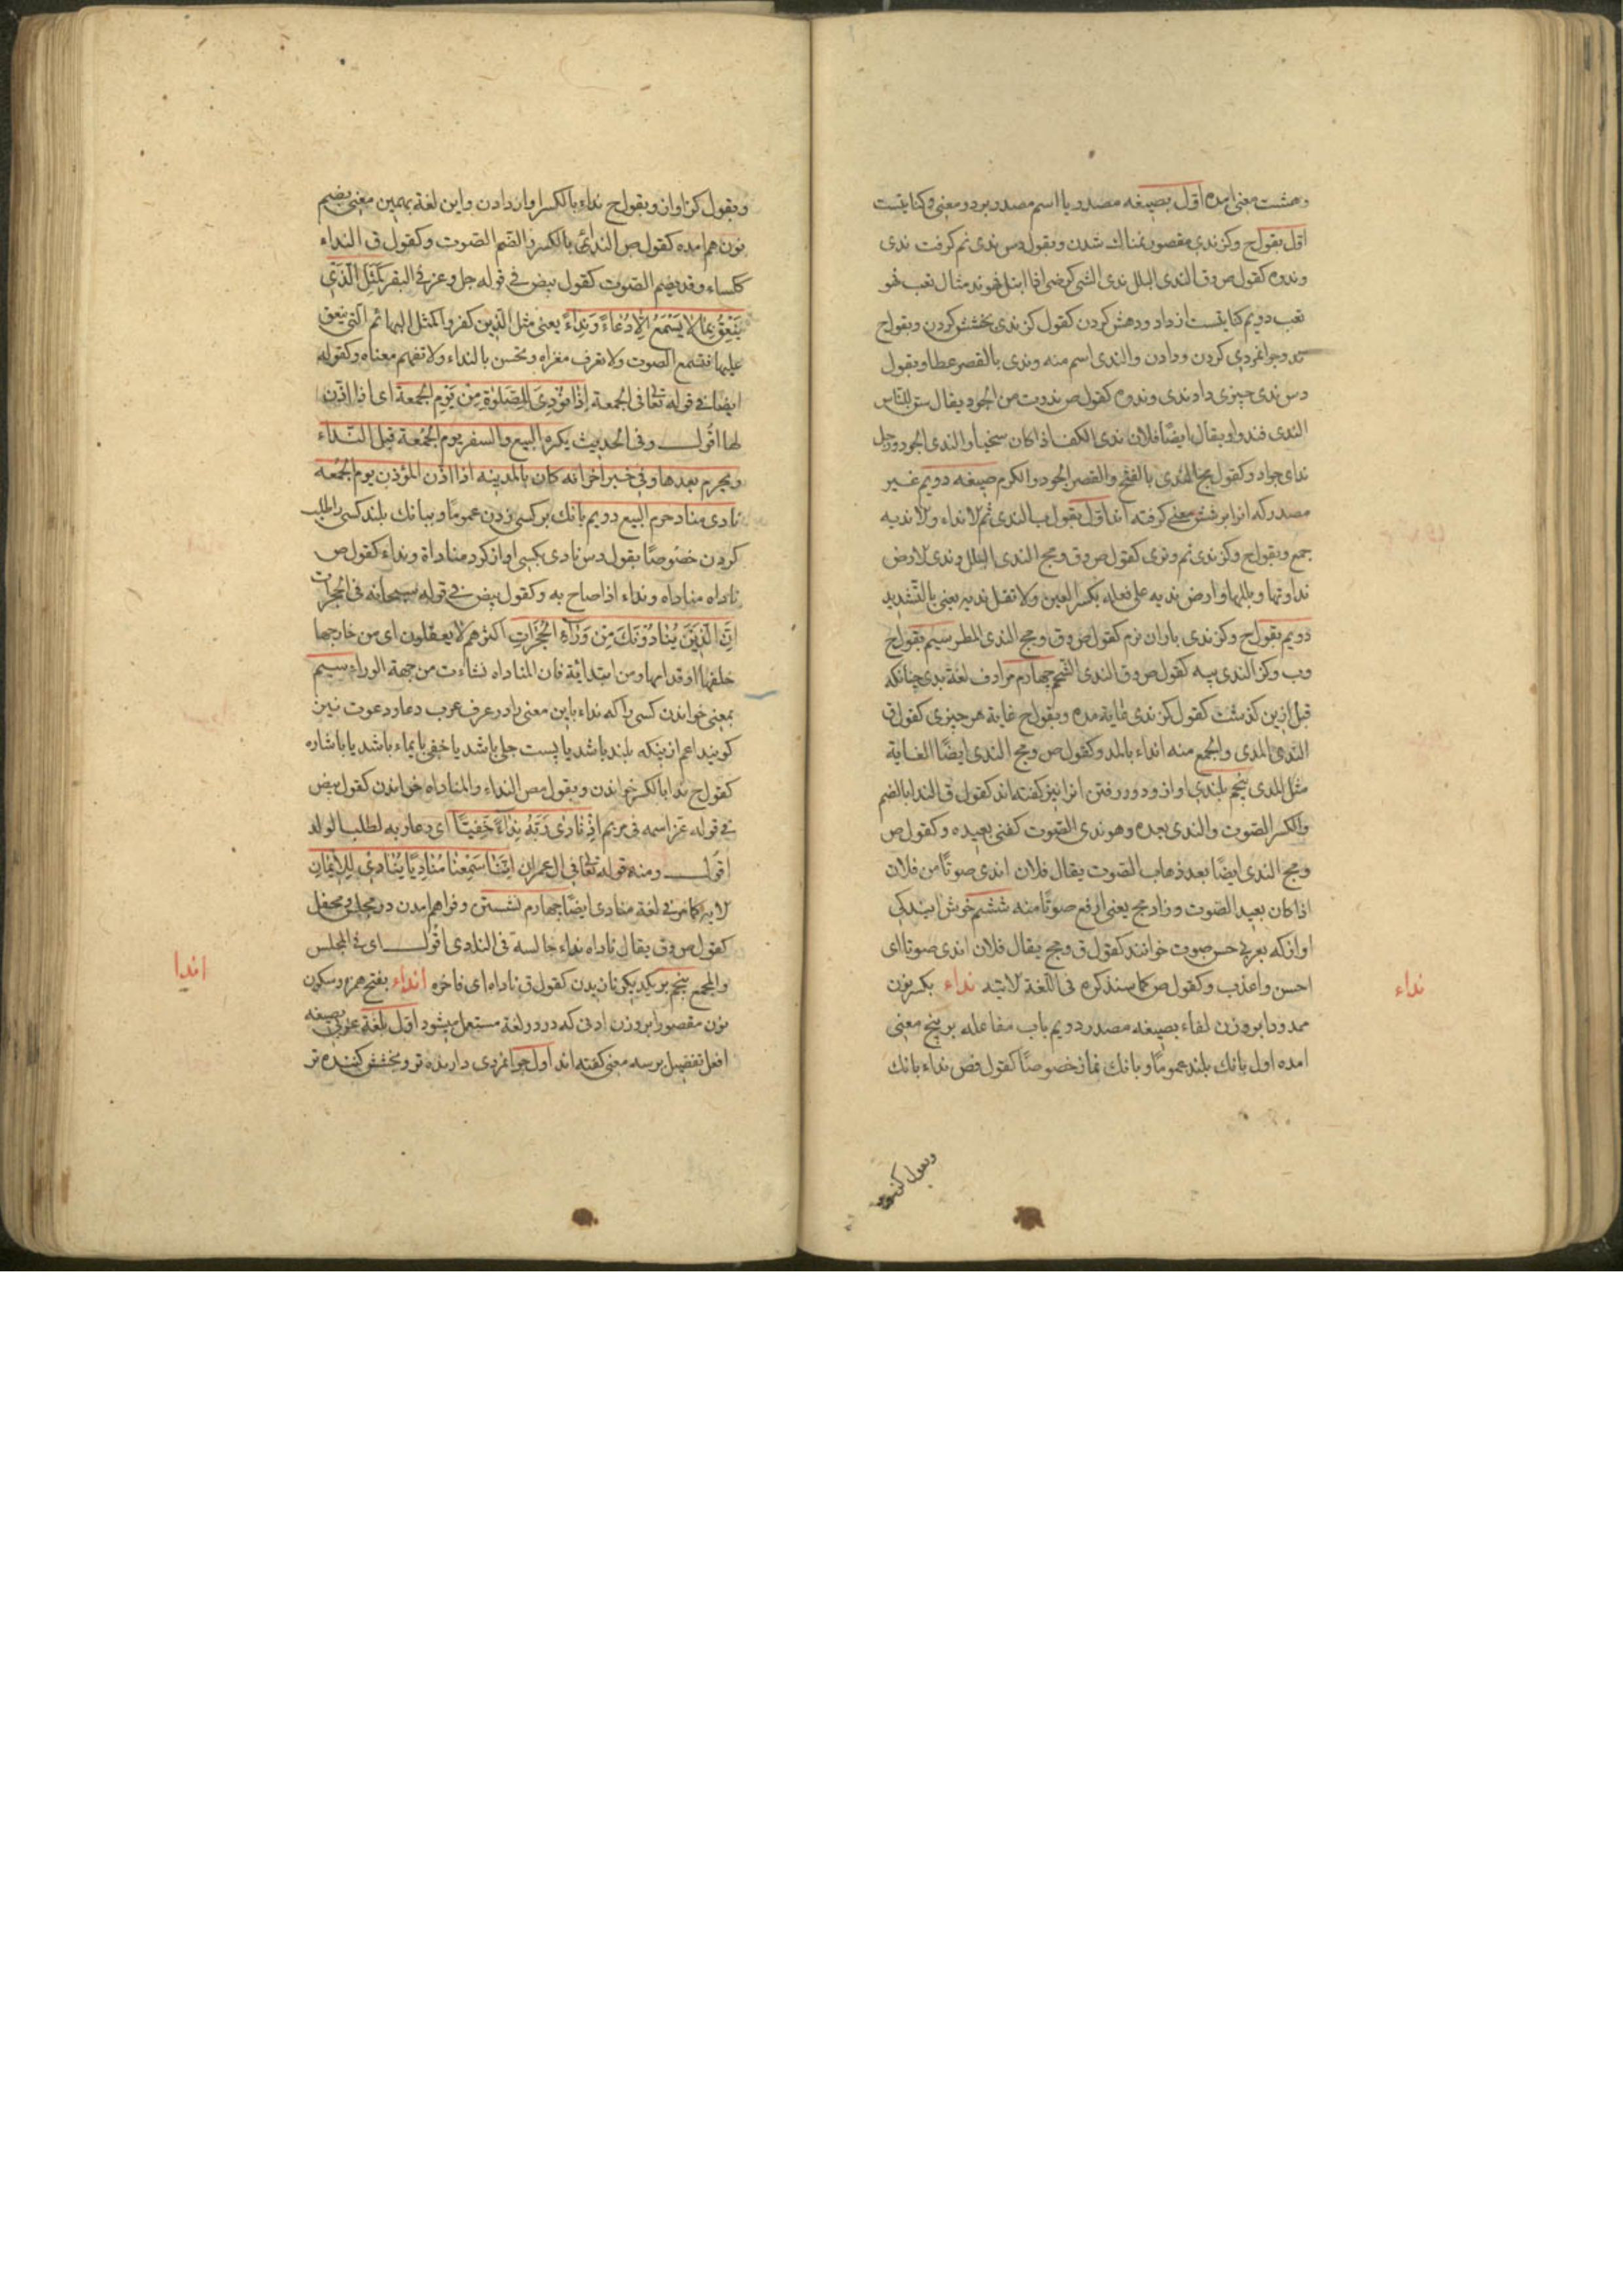 وهشت معنی امده اول بصیغه مصدر یا اسم مصدر بر دو معنی و کنایتست
اول بقول ج وکز ندی مقصور نمناك شدن وبقول دس ندی نم کرفت ندی
وندوه کقول ص وق الندی البلل ندی الشی کرضی اذا ابتل فهو ند مثال تعب فهو
تعب دویم کنایتست از داد ودهش کردن کقول کز ندی بخشش کردن وبقول ج
ند وجوانمردی کردن ودادن والندی اسم منه وندی بالقصر عطا وبقول
دس ندی چیزی داد ندی وندوه کقول ص ندوت من الجود یقال سن للناس
الندی فندوا ویقال ایضًا فلان ندی الکف اذا کان سخیا والندی الجود ورجل
ندای جواد وکقول مج الندی بالفتح والقصر الجود والکرم صیغه دویم غیر
مصدر که انرا بر شش معنی کرفته اند اول بقول ب الندی نم لانداء ولا ندیه
جمع وبقول ج وکز ندی نم وتری کقول ص وق ومج الندی البلل وندی لارض
نداوتها وبللها وارض ندیه علی فعله بکسر العین ولا تقل ندیه یعنی بالتشدید
دویم بقول ج وکز ندی باران نرم کقول ص وق ومج الندی المطر سیم بقول ج
وب وکز الندی پیه کقول ص وق الندی الشحم چهارم مرادف لغة بدی چنانکه
قبل ازین کذشت کقول کز ندی غایة مده وبقول ج غایة هر چیزی کقول ق
الندی المدی والجمع منه انداء بالمد وکقول ص ومج الندی ایضًا الغایة
مثل المدی پنجم بلندی اواز ودور رفتن انرا نیز کفته اند کقول ق الندا بالضم
والکسر الصوت والندی بعده وهو ندی الصوت کغنی بعیده وکقول ص
ومج الندی ایضًا بعد ذهاب الصوت یقال فلان اندی صوتًا من فلان
اذا کان بعید الصوت وزاد مج یعنی ارفع صوتًا منه ششم خوش ایندکی
اواز که بعربی حسن صوت خوانند کقول ق ومج یقال فلان اندی صوتا ای
احسن واعذب وکقول ص کما سنذکره فی اللغة لاتیه نداء بکسر نون
ممدودا بر وزن لقاء بصیغه مصدر دویم باب مفاعله بر پنج معنی
امده اول بانك بلند عمومًا وبانك نماز خصوصًا کقول فض نداء بانك
نداء
وبقول کنز
وبقول کز اواز وبقول ج نداء بالکسر اواز دادن واین لغة بهمین معنی بضم
نون هم امده کقول ص الندائی بالکسر والضم الصوت وکقول ق النداء
ککساء وقد یضم الصوت کقول بیض فی قوله جل وعز فی البقر کَمَثَلِ الَّذِی
یَنْعِقُ بِمَا لَا یَسْمَعُ اِلَّا دُعَاءً وَنِدَاءً یعنی مثل الذین کفروا کمثل البهائم التی ینعق
علیها فتسمع الصوت ولا تعرف مغزاه وتحس بالنداء ولا تفهم معناه وکقوله
ایضا فی قوله تعالی فی الجمعة اِذَا نُوْدِیَ لِلصَّلٰوةِ مِنْ یَوْمِ الْجُمُعَةِ ای اذا اذن
لها اقول وفی الحدیث یکره البیع والسفر یوم الجمعة قبل النداء
ویحرم بعدها وفی خبر اخر انه کان بالمدینه اذا اذن المؤذن یوم الجمعه
نادی مناد حرم البیع دویم بانك بر کسی زدن عمومًا وببانك بلند کسی را طلب
کردن خصوصًا بقول دس نادی بکسی اواز کرد مناداة ونداء کقول ص
ناداه مناداه ونداء اذا صاح به وکقول بیض فی قوله سبحانه فی الحجرات
اِنَّ الَّذِیْنَ یُنَادُوْنَكَ مِنْ وَرَاءِ الْحُجُرَاتِ اکثرهم لا یعقلون ای من خارجها
خلفها او قدامها ومن ابتدائیة فان المناداه نشاءت من جهة الوراء سیم
بمعنی خواندن کسی را که نداء باین معنی را در عرف عرب دعا ودعوت نیز
کویند اعم از ینکه بلند باشد یا پست جلی باشد یا خفی بایماء باشد یا باشاره
کقول ج ندا بالکسر خواندن وبقول مص النداء والمناداه خواندن کقول بیض
فی قوله عز اسمه فی مریم اِذْ نَادٰی رَبَّهُ نِدَاءً خَفِیًّا ای دعا ربه لطلب الولد
اقول ومنه قوله تعالی فی ال عمران اِنَّنَا سَمِعْنَا مُنَادِیًا یُنَادِیْ لِلْاِیْمَانِ
لایه کما مر فی لغة منادی ایضًا چهارم نشستن وفراهم امدن در مجلس ومحفل
کقول ص وق یقال ناداه نداء جالسه فی النادی اقول ای فی المجلس
والمجمع پنجم بر یکدیکر نازیدن کقول ق ناداه ای فاخره انداء بفتح همزه وسکون
نون مقصورا بر وزن ادنی که در دو لغة مستعمل میشود اول بلغة عربی بصیغه
افعل تفضیل بر سه معنی کفته اند اول جوانمردی دارنده تر وبخشش کننده تر
اندا